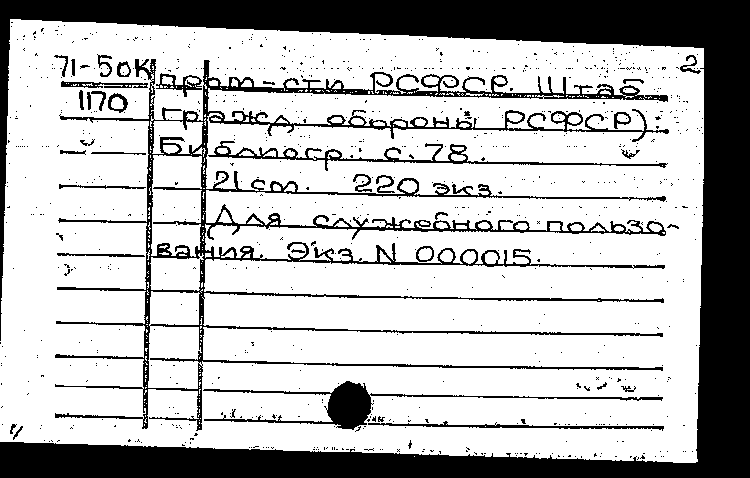 2
71-50К пром-сти РСФСР. Штаб
1170 гражд. обороны РСФСР):
Библиогр.: с. 78.
21 cm. 220 экз.
Для служебного пользо-
вания. Экз. N 000015.